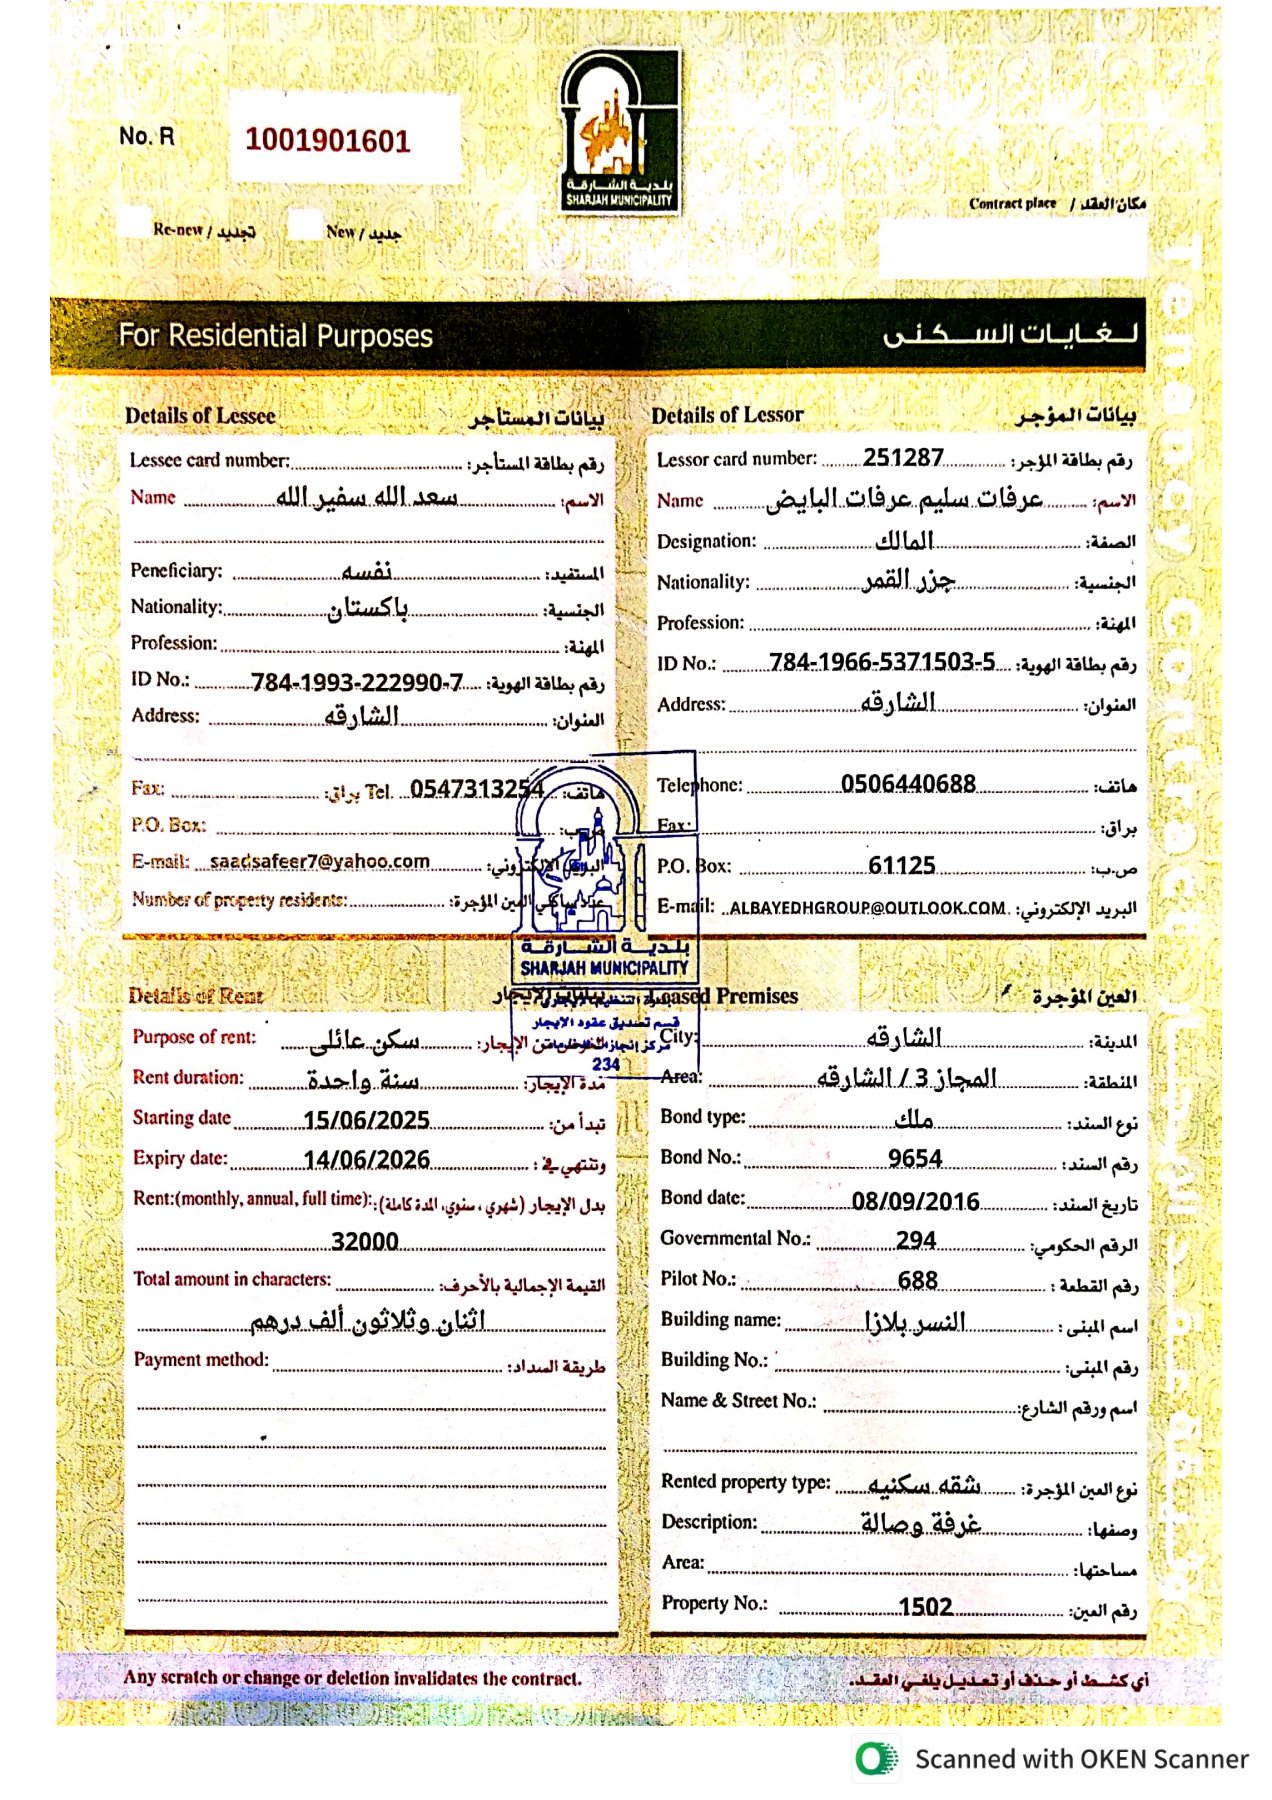 No. R 1001901601
بلدية الشارقة
SHARJAH MUNICIPALITY
Contract place / مكان العقد
Re-new / تجديد New / جديد
For Residential Purposes لغايات السكنى
Tenancy Contract
Details of Lessee بيانات المستأجر
Lessee card number: رقم بطاقة المستأجر:
Name سعد الله سفير الله الاسم:
Peneficiary: نفسه المستفيد:
Nationality: باكستان الجنسية:
Profession: المهنة:
ID No.: 784-1993-222990-7 رقم بطاقة الهوية:
Address: الشارقه العنوان:
Fax: براق: Tel. 0547313254 هاتف:
P.O. Box: ص.ب:
E-mail: saadsafeer7@yahoo.com البريد الإلكتروني:
Number of property residents: عدد ساكني العين المؤجرة:
Details of Lessor بيانات المؤجر
Lessor card number: 251287 رقم بطاقة المؤجر:
Name عرفات سليم عرفات البايض الاسم:
Designation: المالك الصفة:
Nationality: جزر القمر الجنسية:
Profession: المهنة:
ID No.: 784-1966-5371503-5 رقم بطاقة الهوية:
Address: الشارقه العنوان:
Telephone: 0506440688 هاتف:
Fax: براق:
P.O. Box: 61125 ص.ب:
E-mail: ALBAYEDHGROUP@OUTLOOK.COM البريد الإلكتروني:
بلدية الشارقة
SHARJAH MUNICIPALITY
قسم تصديق عقود الايجار
234
Details of Rent بيانات الإيجار
Purpose of rent: سكن عائلى الغرض من الإيجار:
Rent duration: سنة واحدة مدة الإيجار:
Starting date 15/06/2025 تبدأ من:
Expiry date: 14/06/2026 وتنتهي في:
Rent:(monthly, annual, full time): بدل الإيجار (شهري، سنوي، المدة كاملة):
32000
Total amount in characters: القيمة الإجمالية بالأحرف:
اثنان وثلاثون ألف درهم
Payment method: طريقة السداد:
Leased Premises العين المؤجرة
City: الشارقه المدينة:
Area: المجاز 3 / الشارقه المنطقة:
Bond type: ملك نوع السند:
Bond No.: 9654 رقم السند:
Bond date: 08/09/2016 تاريخ السند:
Governmental No.: 294 الرقم الحكومي:
Pilot No.: 688 رقم القطعة :
Building name: النسر بلازا اسم المبنى :
Building No.: رقم المبنى:
Name & Street No.: اسم ورقم الشارع:
Rented property type: شقه سكنيه نوع العين المؤجرة:
Description: غرفة وصالة وصفها:
Area: مساحتها:
Property No.: 1502 رقم العين:
Any scratch or change or deletion invalidates the contract. أي كشط أو حذف أو تعديل يلغي العقد.
Scanned with OKEN Scanner